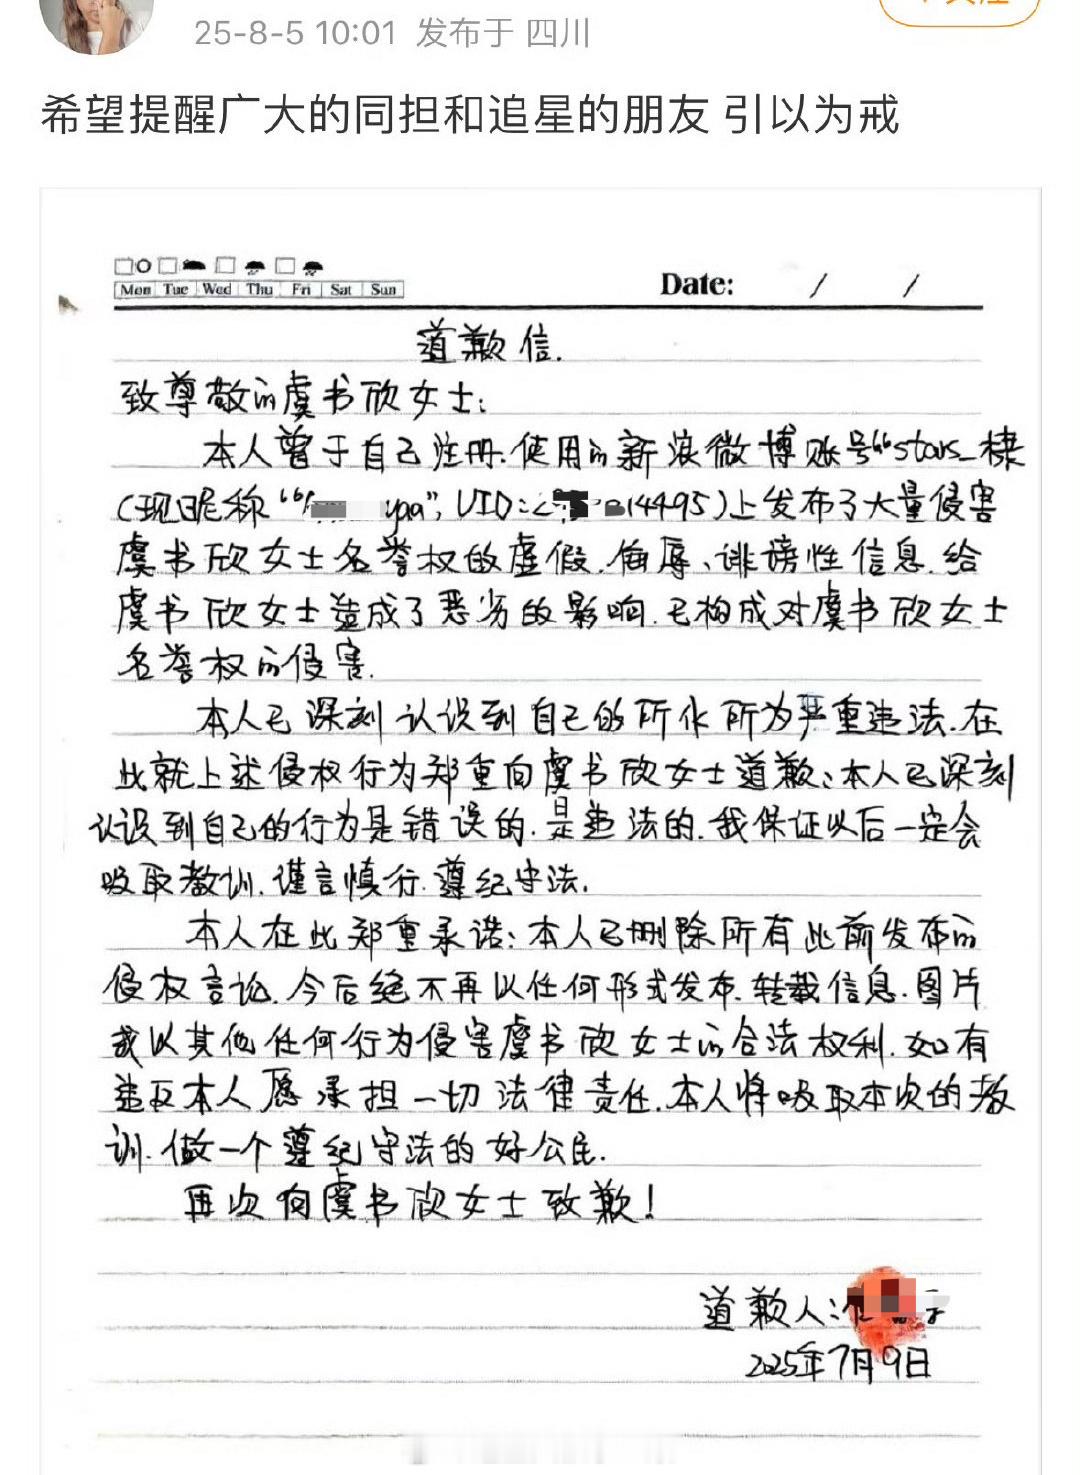 25-8-5 10:01 发布于 四川
希望提醒广大的同担和追星的朋友 引以为戒
Mon Tue Wed Thu Fri Sat Sun
Date: / /
道歉信.
致尊敬的虞书欣女士:
本人曾于自己注册.使用的新浪微博账号"stars_棣
(现昵称" yaa", UID: 14495)上发布了大量侵害
虞书欣女士名誉权的虚假.侮辱、诽谤性信息.给
虞书欣女士造成了恶劣的影响.已构成对虞书欣女士
名誉权的侵害.
本人已深刻认识到自己的所作所为严重违法.在
此就上述侵权行为郑重向虞书欣女士道歉:本人已深刻
认识到自己的行为是错误的.是违法的.我保证以后一定会
吸取教训.谨言慎行.遵纪守法.
本人在此郑重承诺:本人已删除所有此前发布的
侵权言论.今后绝不再以任何形式发布.转载信息.图片
或以其他任何行为侵害虞书欣女士的合法权利.如有
违反本人愿承担一切法律责任.本人将吸取本次的教
训.做一个遵纪守法的好公民.
再次向虞书欣女士致歉!
道歉人:
2025年7月9日